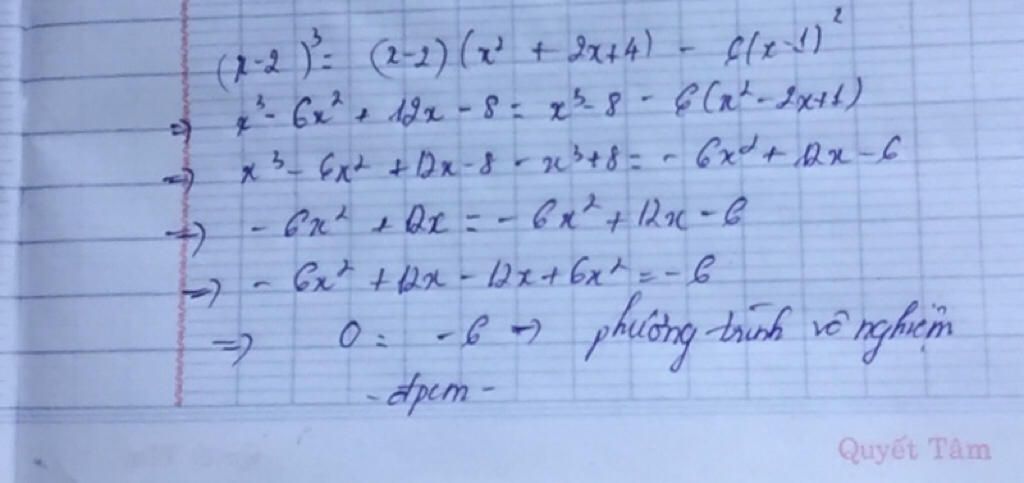 (x-2)³ = (x-2)(x² + 2x+4) - 6(x-1)²
=> x³- 6x² + 12x - 8 = x³- 8 - 6(x² - 2x+1)
=> x³ - 6x² + 12x - 8 - x³ + 8 = - 6x² + 12x - 6
=> - 6x² + 12x = - 6x² + 12x - 6
=> - 6x² + 12x - 12x + 6x² = - 6
=> 0 = - 6 -> phương trình vô nghiệm
- đpcm -
Quyết Tâm